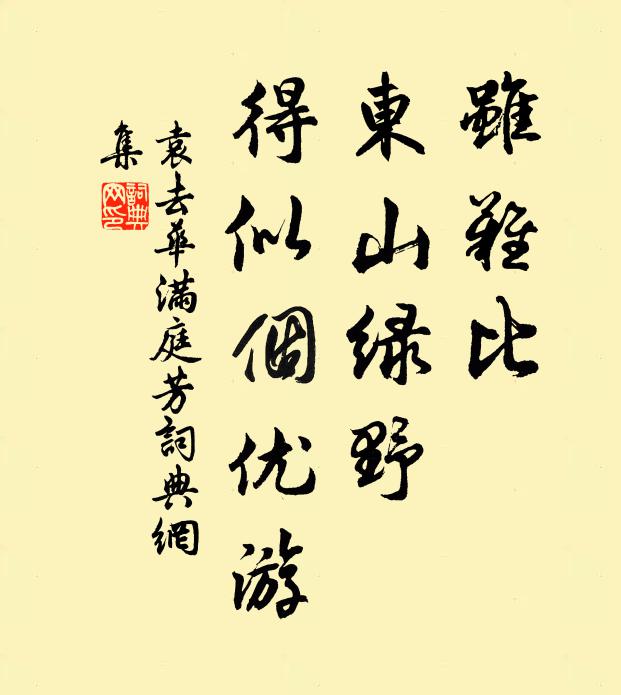 雖難比
東山緑野
得似個优游
袁去華滿庭芳詞典網
集
詞典
网印